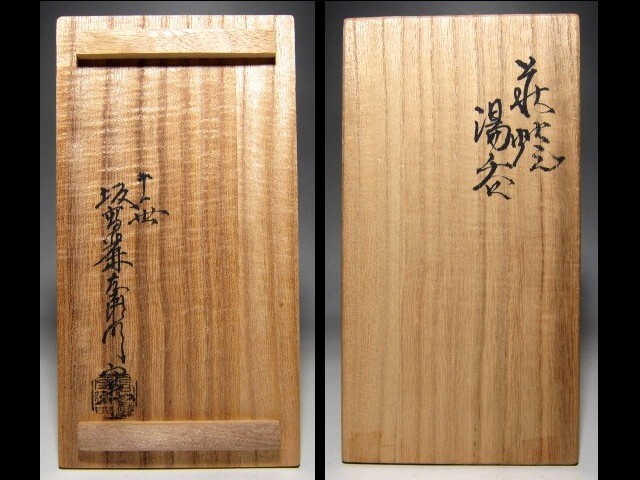 十一世
坂高麗左衛門
萩焼
湯呑